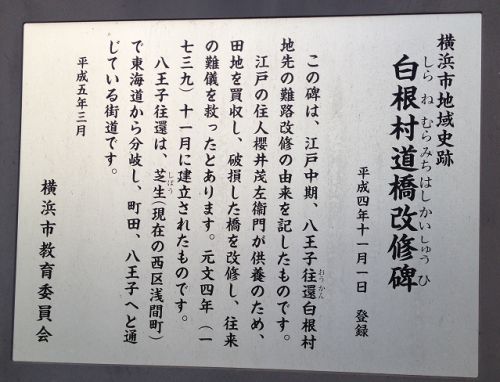 横浜市地域史跡
白根村道橋改修碑
しらねむらみちはしかいしゅうひ
平成四年十一月一日 登録
この碑は、江戸中期、八王子往還白根村
おうかん
地先の難路改修の由来を記したものです。
江戸の住人櫻井茂左衛門が供養のため、
田地を買収し、破損した橋を改修し、往来
の難儀を救ったとあります。元文四年（一
七三九）十一月に建立されたものです。
八王子往還は、芝生（現在の西区浅間町）
しぼう
で東海道から分岐し、町田、八王子へと通
じている街道です。
平成五年三月
横浜市教育委員会